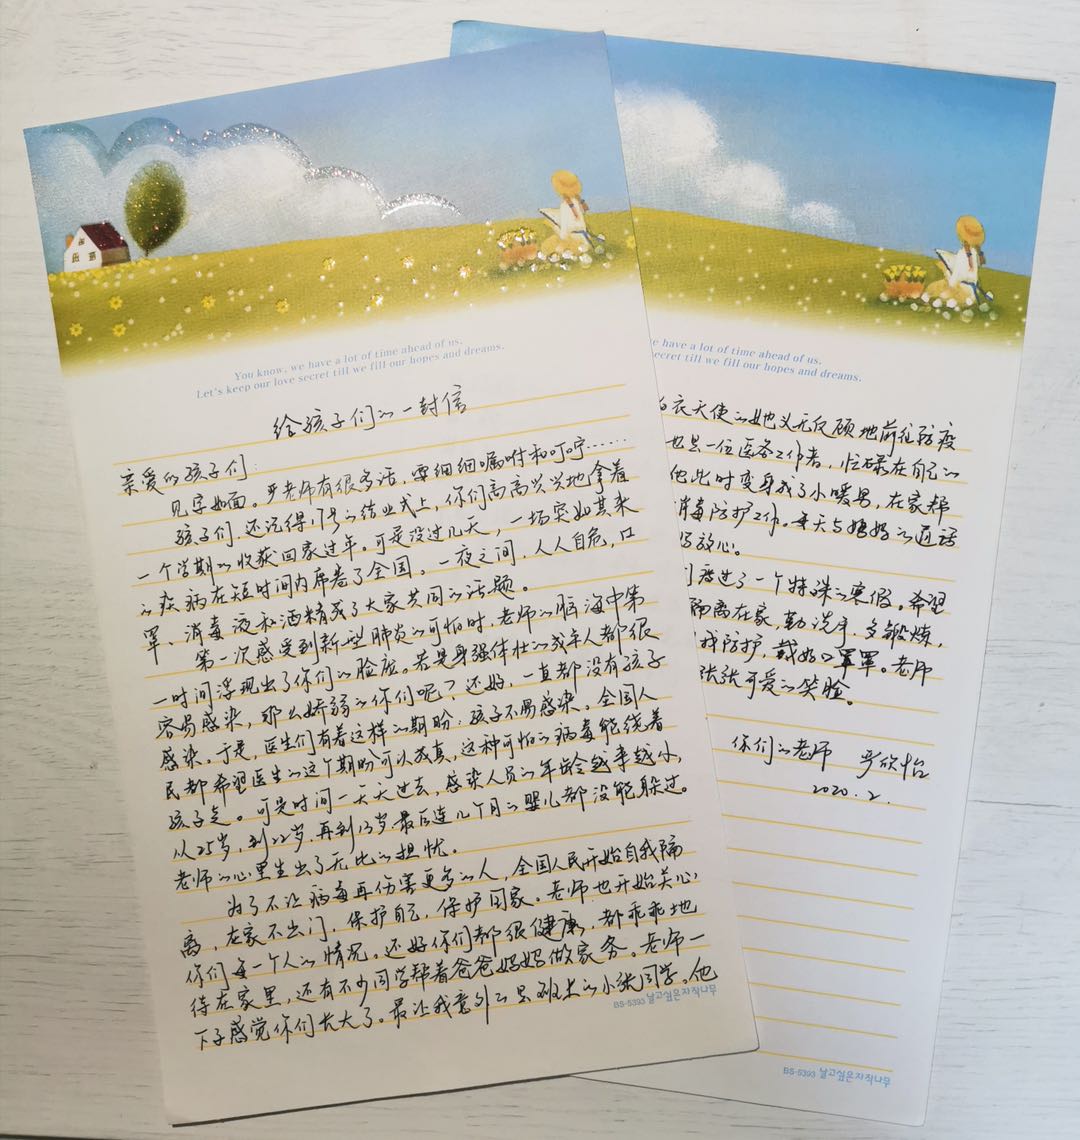 You know, we have a lot of time ahead of us.
Let's keep our love secret till we fill our hopes and dreams.
给孩子们的一封信
亲爱的孩子们:
见字如面。严老师有很多话,要细细嘱咐和叮咛……
孩子们,还记得,17号的结业式上,你们高高兴兴地拿着
一个学期的收获回家过年。可是没过几天,一场突如其来
的疾病在短时间内席卷了全国。一夜之间,人人自危,口
罩、消毒液和酒精成了大家共同的话题。
第一次感受到新型肺炎的可怕时,老师的脑海中第
一时间浮现出了你们的脸庞。若是身强体壮的成年人都很
容易感染,那么娇弱的你们呢?还好,一直都没有孩子
感染。于是,医生们有着这样的期盼:孩子不易感染。全国人
民都希望医生的这个期盼可以成真,这种可怕的病毒能绕着
孩子走。可是时间一天天过去,感染人员的年龄越来越小,
从25岁,到22岁,再到13岁,最后连几个月的婴儿都没能躲过。
老师的心里生出了无比的担忧。
为了不让病毒再伤害更多的人,全国人民开始自我隔
离,在家不出门,保护自己,保护国家。老师也开始关心
你们每一个人的情况。还好你们都很健康,都乖乖地
待在家里,还有不少同学帮着爸爸妈妈做家务。老师一
下子感觉你们长大了。最让我意外的是班长的小张同学。他
BS-5393 날고싶은자작나무
have a lot of time ahead of us.
secret till we fill our hopes and dreams.
白衣天使的她义无反顾地前往防疫
也是一位医务工作者,忙碌在自己的
他此时变身成了小暖男,在家帮
消毒防护工作。每天与妈妈的通话
放心。
们度过了一个特殊的寒假。希望
隔离在家,勤洗手,多锻炼,
我防护,戴好口罩。老师
张张可爱的笑脸。
你们的老师 严欣怡
2020.2.
BS-5393 날고싶은자작나무